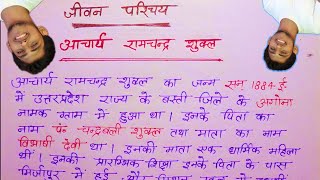 जीवन परिचय
आचार्य रामचन्द्र शुक्ल
आचार्य रामचन्द्र शुक्ल का जन्म सन् 1884 ई
में उत्तरप्रदेश राज्य के बस्ती जिले के अगोना
नामक ग्राम में हुआ था। इनके पिता का
नाम पं॰ चन्द्रबली शुक्ल तथा माता का नाम
विभाषी देवी था। इनकी माता एक धार्मिक महिला
थीं। इनकी प्रारम्भिक शिक्षा इनके पिता के पास